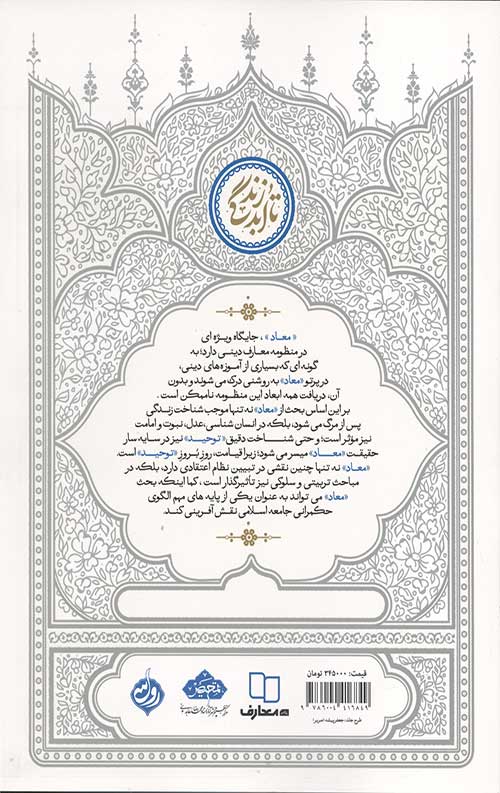 زندگی تا ابدیت
« معاد » ، جایگاه ویژه ای
در منظومه معارف دینی دارد؛ به
گونه ای که بسیاری از آموزه های دینی،
در پرتو «معاد» به روشنی درک می شوند و بدون
آن، دریافت همه ابعاد این منظومه ناممکن است .
بر این اساس بحث از «معاد» نه تنها موجب شناخت زندگی
پس از مرگ می شود، بلکه در انسان شناسی،عدل، نبوت و امامت
نیز مؤثر است؛ و حتی شناخت دقیق «توحید» نیز در سایه سار
حقیقت «معاد» میسر می شود؛ زیرا قیامت، روز بُروز «توحید» است.
«معاد» نه تنها چنین نقشی در تبیین نظام اعتقادی دارد، بلکه در
مباحث تربیتی و سلوکی نیز تأثیرگذار است ، کما اینکه بحث
«معاد» می تواند به عنوان یکی از پایه های مهم الگوی
حکمرانی جامعه اسلامی نقش آفرینی کند.
قیمت: ۳۴۵۰۰۰ تومان
معارف
9 786004 416849
طرح جلد: